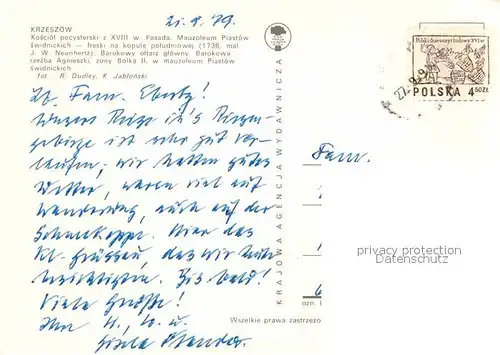 21.9.79.
KRZESZÓW
Kościół pocysterski z XVIII w. Fasada. Mauzoleum Piastów
świdnickich — freski na kopule południowej (1738, mal.
J. W. Neunhertz). Barokowy ołtarz główny. Barokowa
rzeźba Agnieszki, żony Bolka II, w mauzoleum Piastów
świdnickich
fot. R. Dudley, K. Jabłoński
Lb. Fam. Ebertz!
Unsere Reise in's Riesen-
gebirge ist sehr gut ver-
laufen; wir hatten gutes
Wetter, waren viel auf
Wanderung, auch auf der
Schneekoppe. Hier das
Kl. Grüssau, das wir auch
besichtigten. Bis bald!
Viele Grüße!
Ihr H., u.
Gisela
KRAJOWA AGENCJA WYDAWNICZA
POLSKA 4,50 ZŁ
Fam.
privacy protection
Datenschutz
Wszelkie prawa zastrzeżo